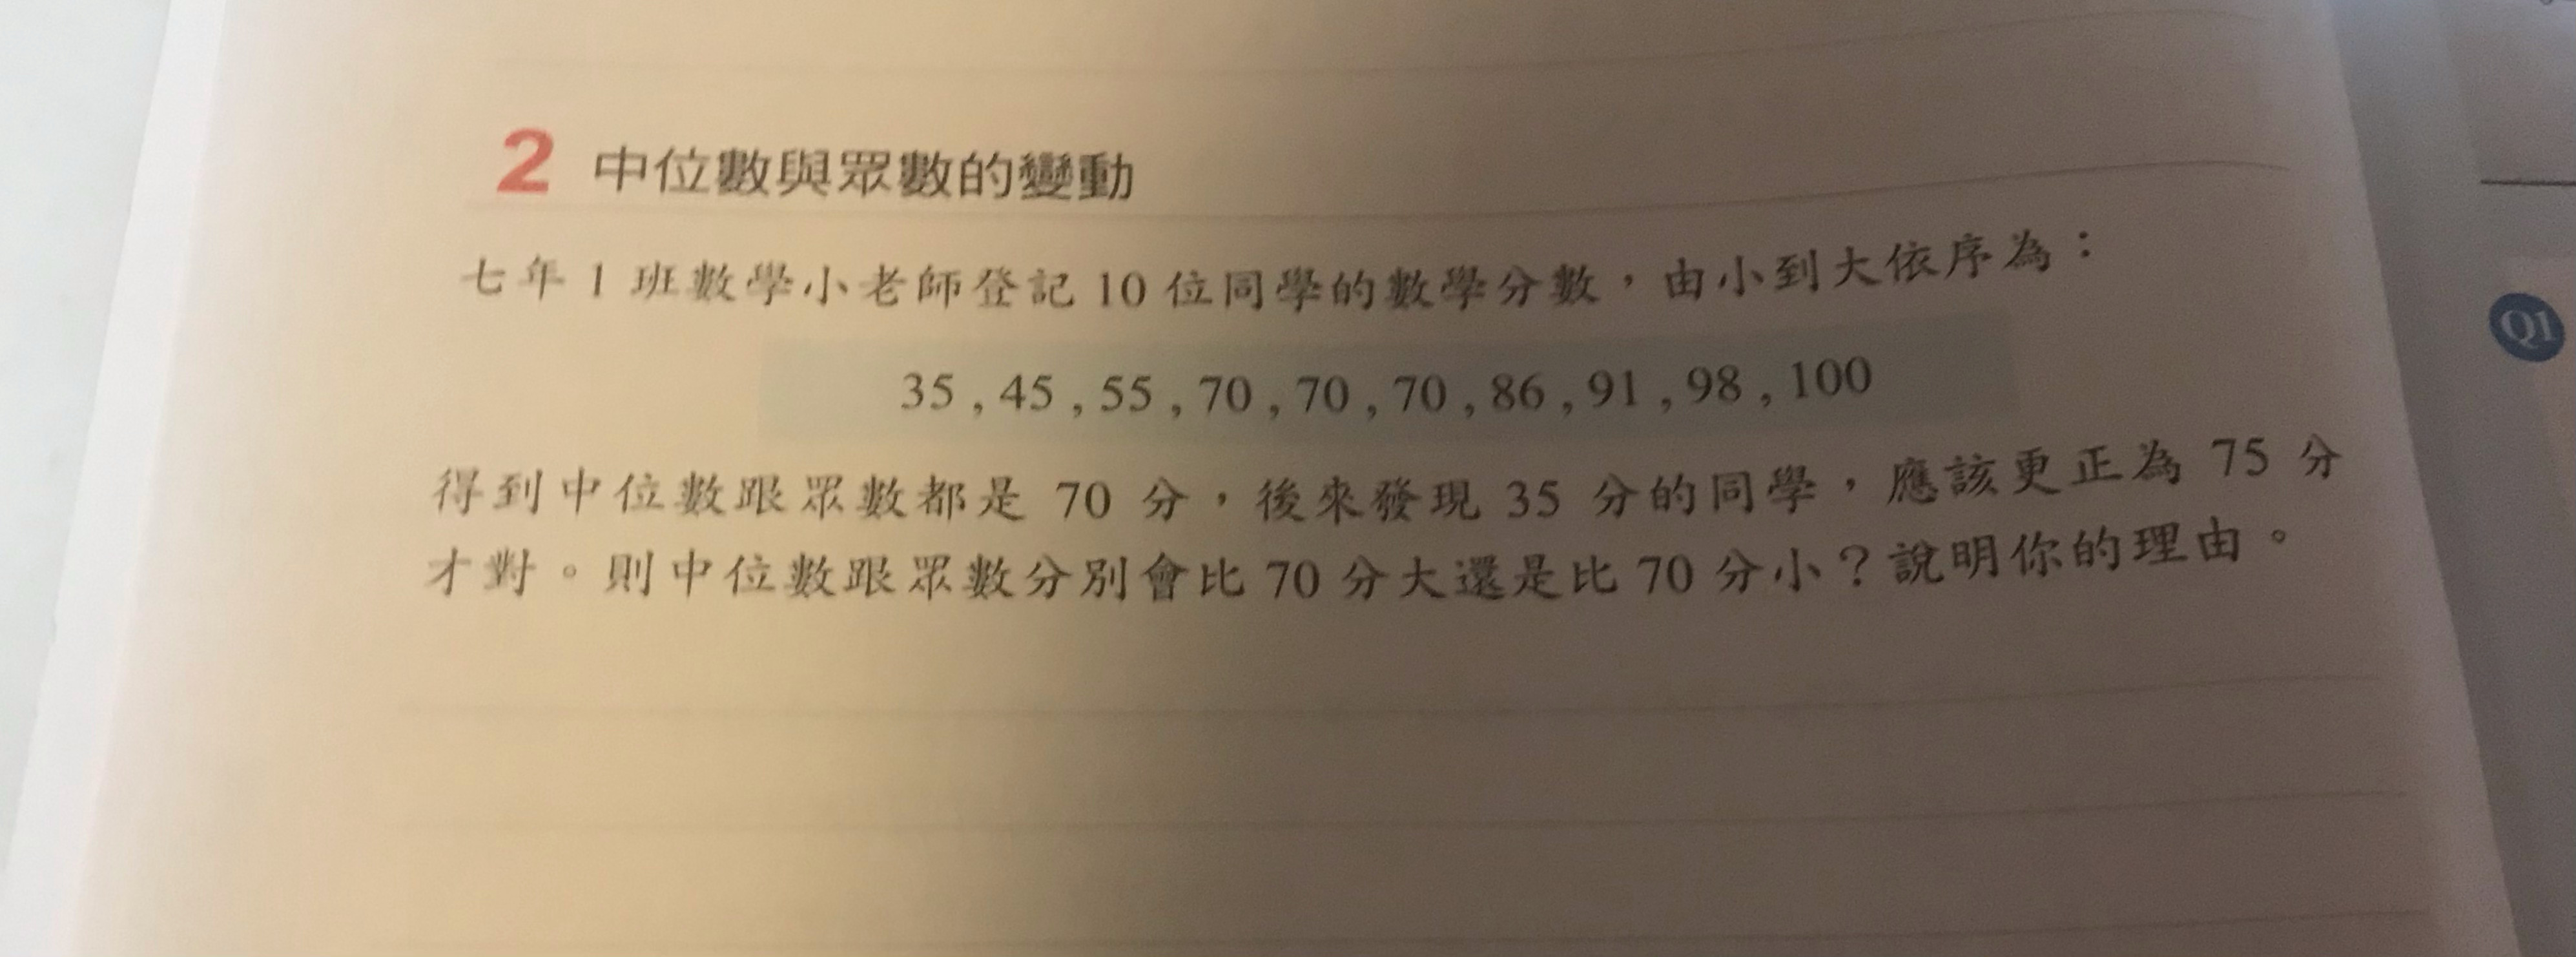 2 中位數與眾數的變動
七年1班數學小老師登記10位同學的數學分數，由小到大依序為：
35 , 45 , 55 , 70 , 70 , 70 , 86 , 91 , 98 , 100
得到中位數跟眾數都是 70 分，後來發現 35 分的同學，應該更正為 75 分
才對。則中位數跟眾數分別會比 70 分大還是比 70 分小？說明你的理由。
Q1